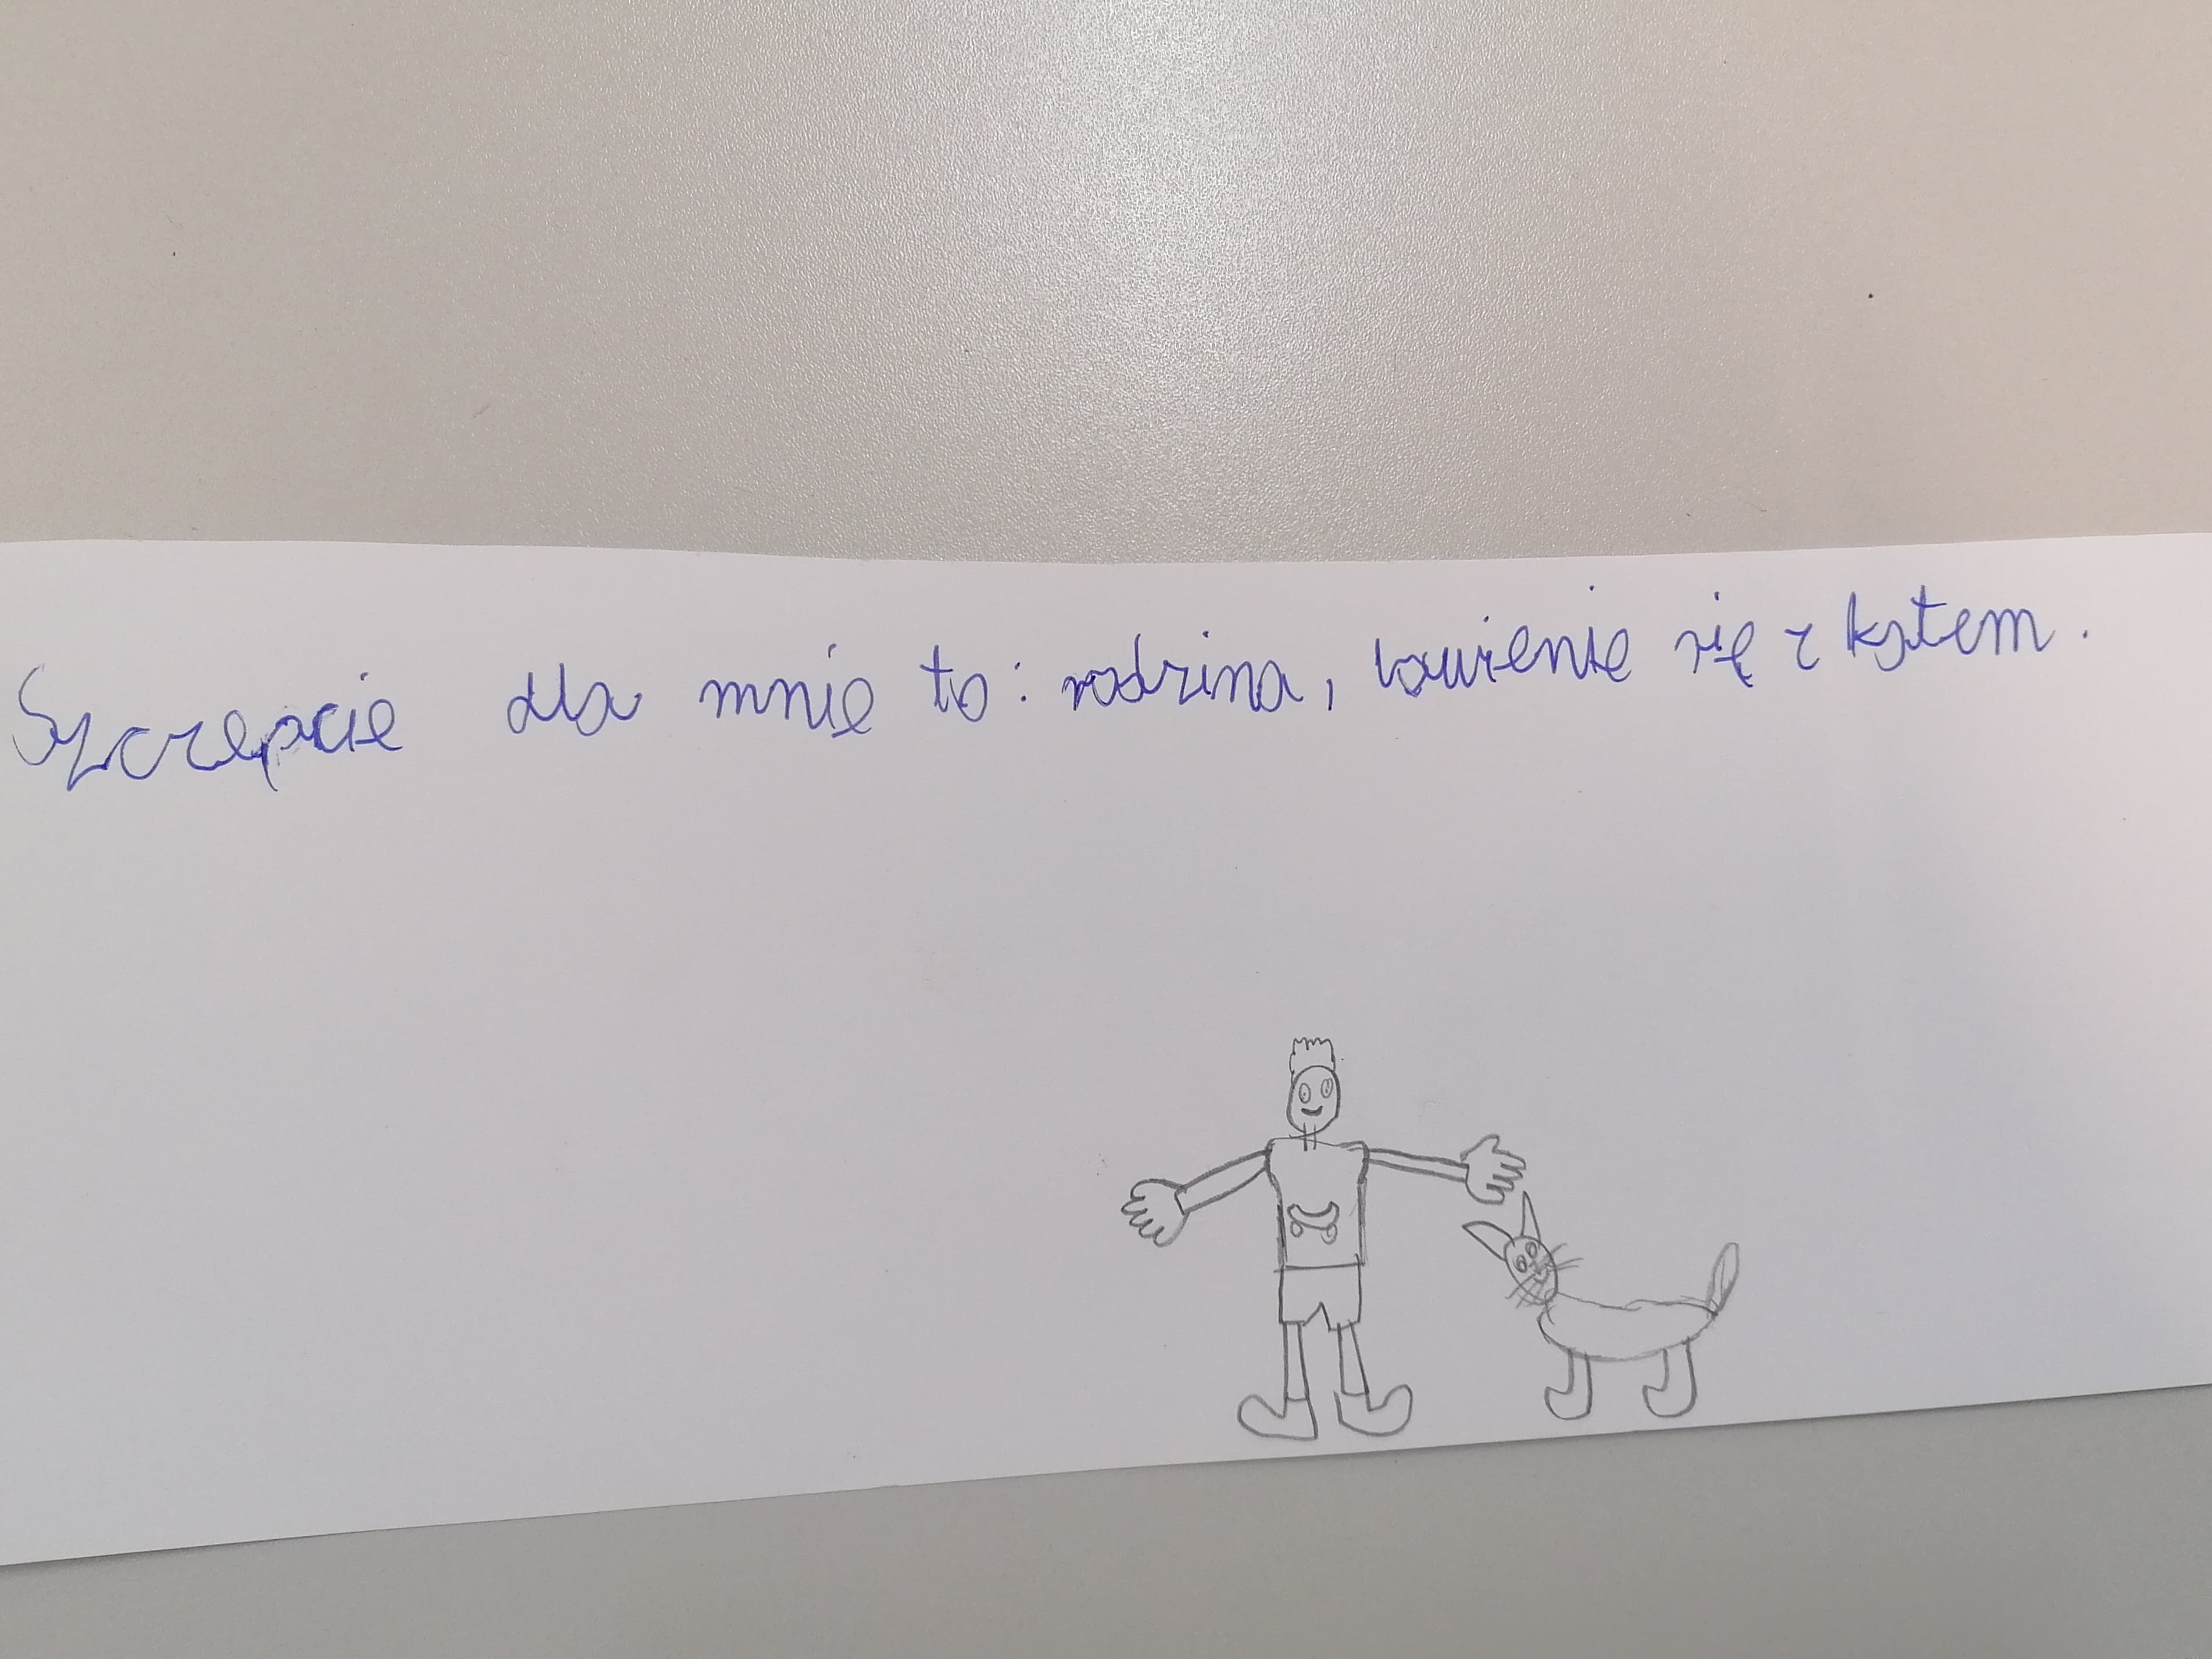 Szczepcie dla mnie to: rodzina, bawienie się z kotem.